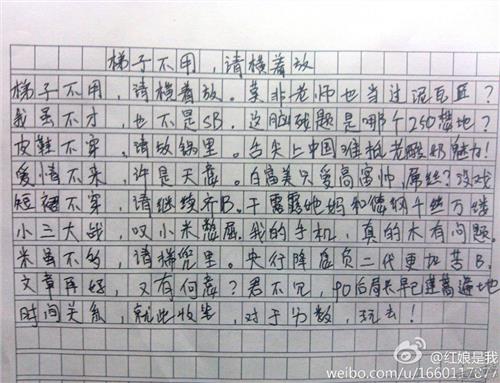 梯子不用，请横着放
梯子不用，请横着放。莫非老师也当过泥瓦匠？
我虽不才，也不是SB，这脑残题是哪个250想地？
皮鞋不穿，请放锅里。舌尖上中国谁抵老酸奶魅力！
爱情不来，许是天意。白富美只爱高富帅，屌丝？没戏
短裙不穿，请继续齐B。干露露她妈和儍钢千丝万缕
小三大战，叹小米憋屈。我的手机，真的木有问题。
米虽不够，请揣兜里。央行降息负二代更加苦B。
文章再好，又有何意？君不见，90后局长早已遍地
时间关系，就此收笔，对于分数，玩去！
@红娘是我
weibo.com/u/1660117877